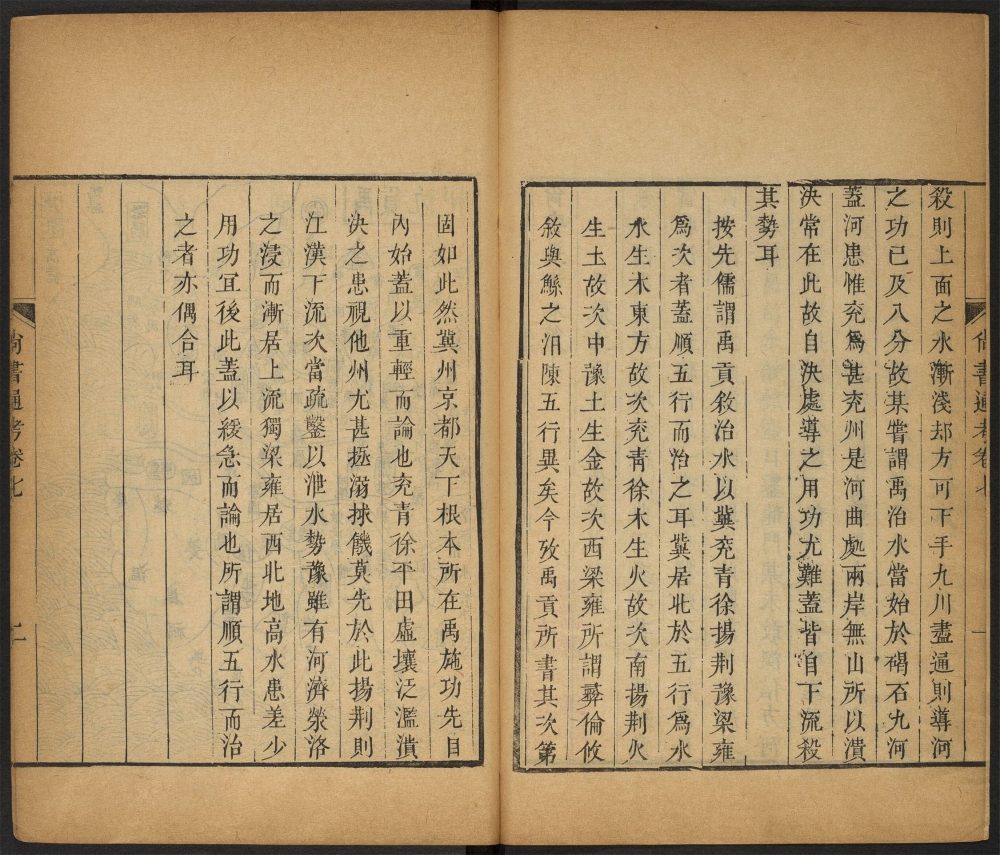 尙書通考卷七
一
殺則上面之水漸淺却方可下手九川盡通則導河
之功已及八分故某嘗謂禹治水當始於碣石九河
蓋河患惟兗爲甚兗州是河曲處兩岸無山所以潰
決常在此故自決處導之用功尤難蓋皆自下流殺
其勢耳
按先儒謂禹貢敘治水以冀兗靑徐揚荆豫梁雍
爲次者蓋順五行而治之耳冀居北於五行爲水
水生木東方故次兗靑徐木生火故次南揚荆火
生土故次中豫土生金故次西梁雍所謂彝倫攸
敘與鯀之汨陳五行異矣今攷禹貢所書其次第
固如此然冀州京都天下根本所在禹施功先自
內始蓋以重輕而論也兗靑徐平田虛壤泛濫潰
決之患視他州尤甚拯溺捄饑莫先於此揚荆則
江漢下流次當疏鑿以泄水勢豫雖有河濟滎洛
之浸而漸居上流獨梁雍居西北地高水患差少
用功宜後此蓋以緩急而論也所謂順五行而治
之者亦偶合耳
尙書通考卷七
二